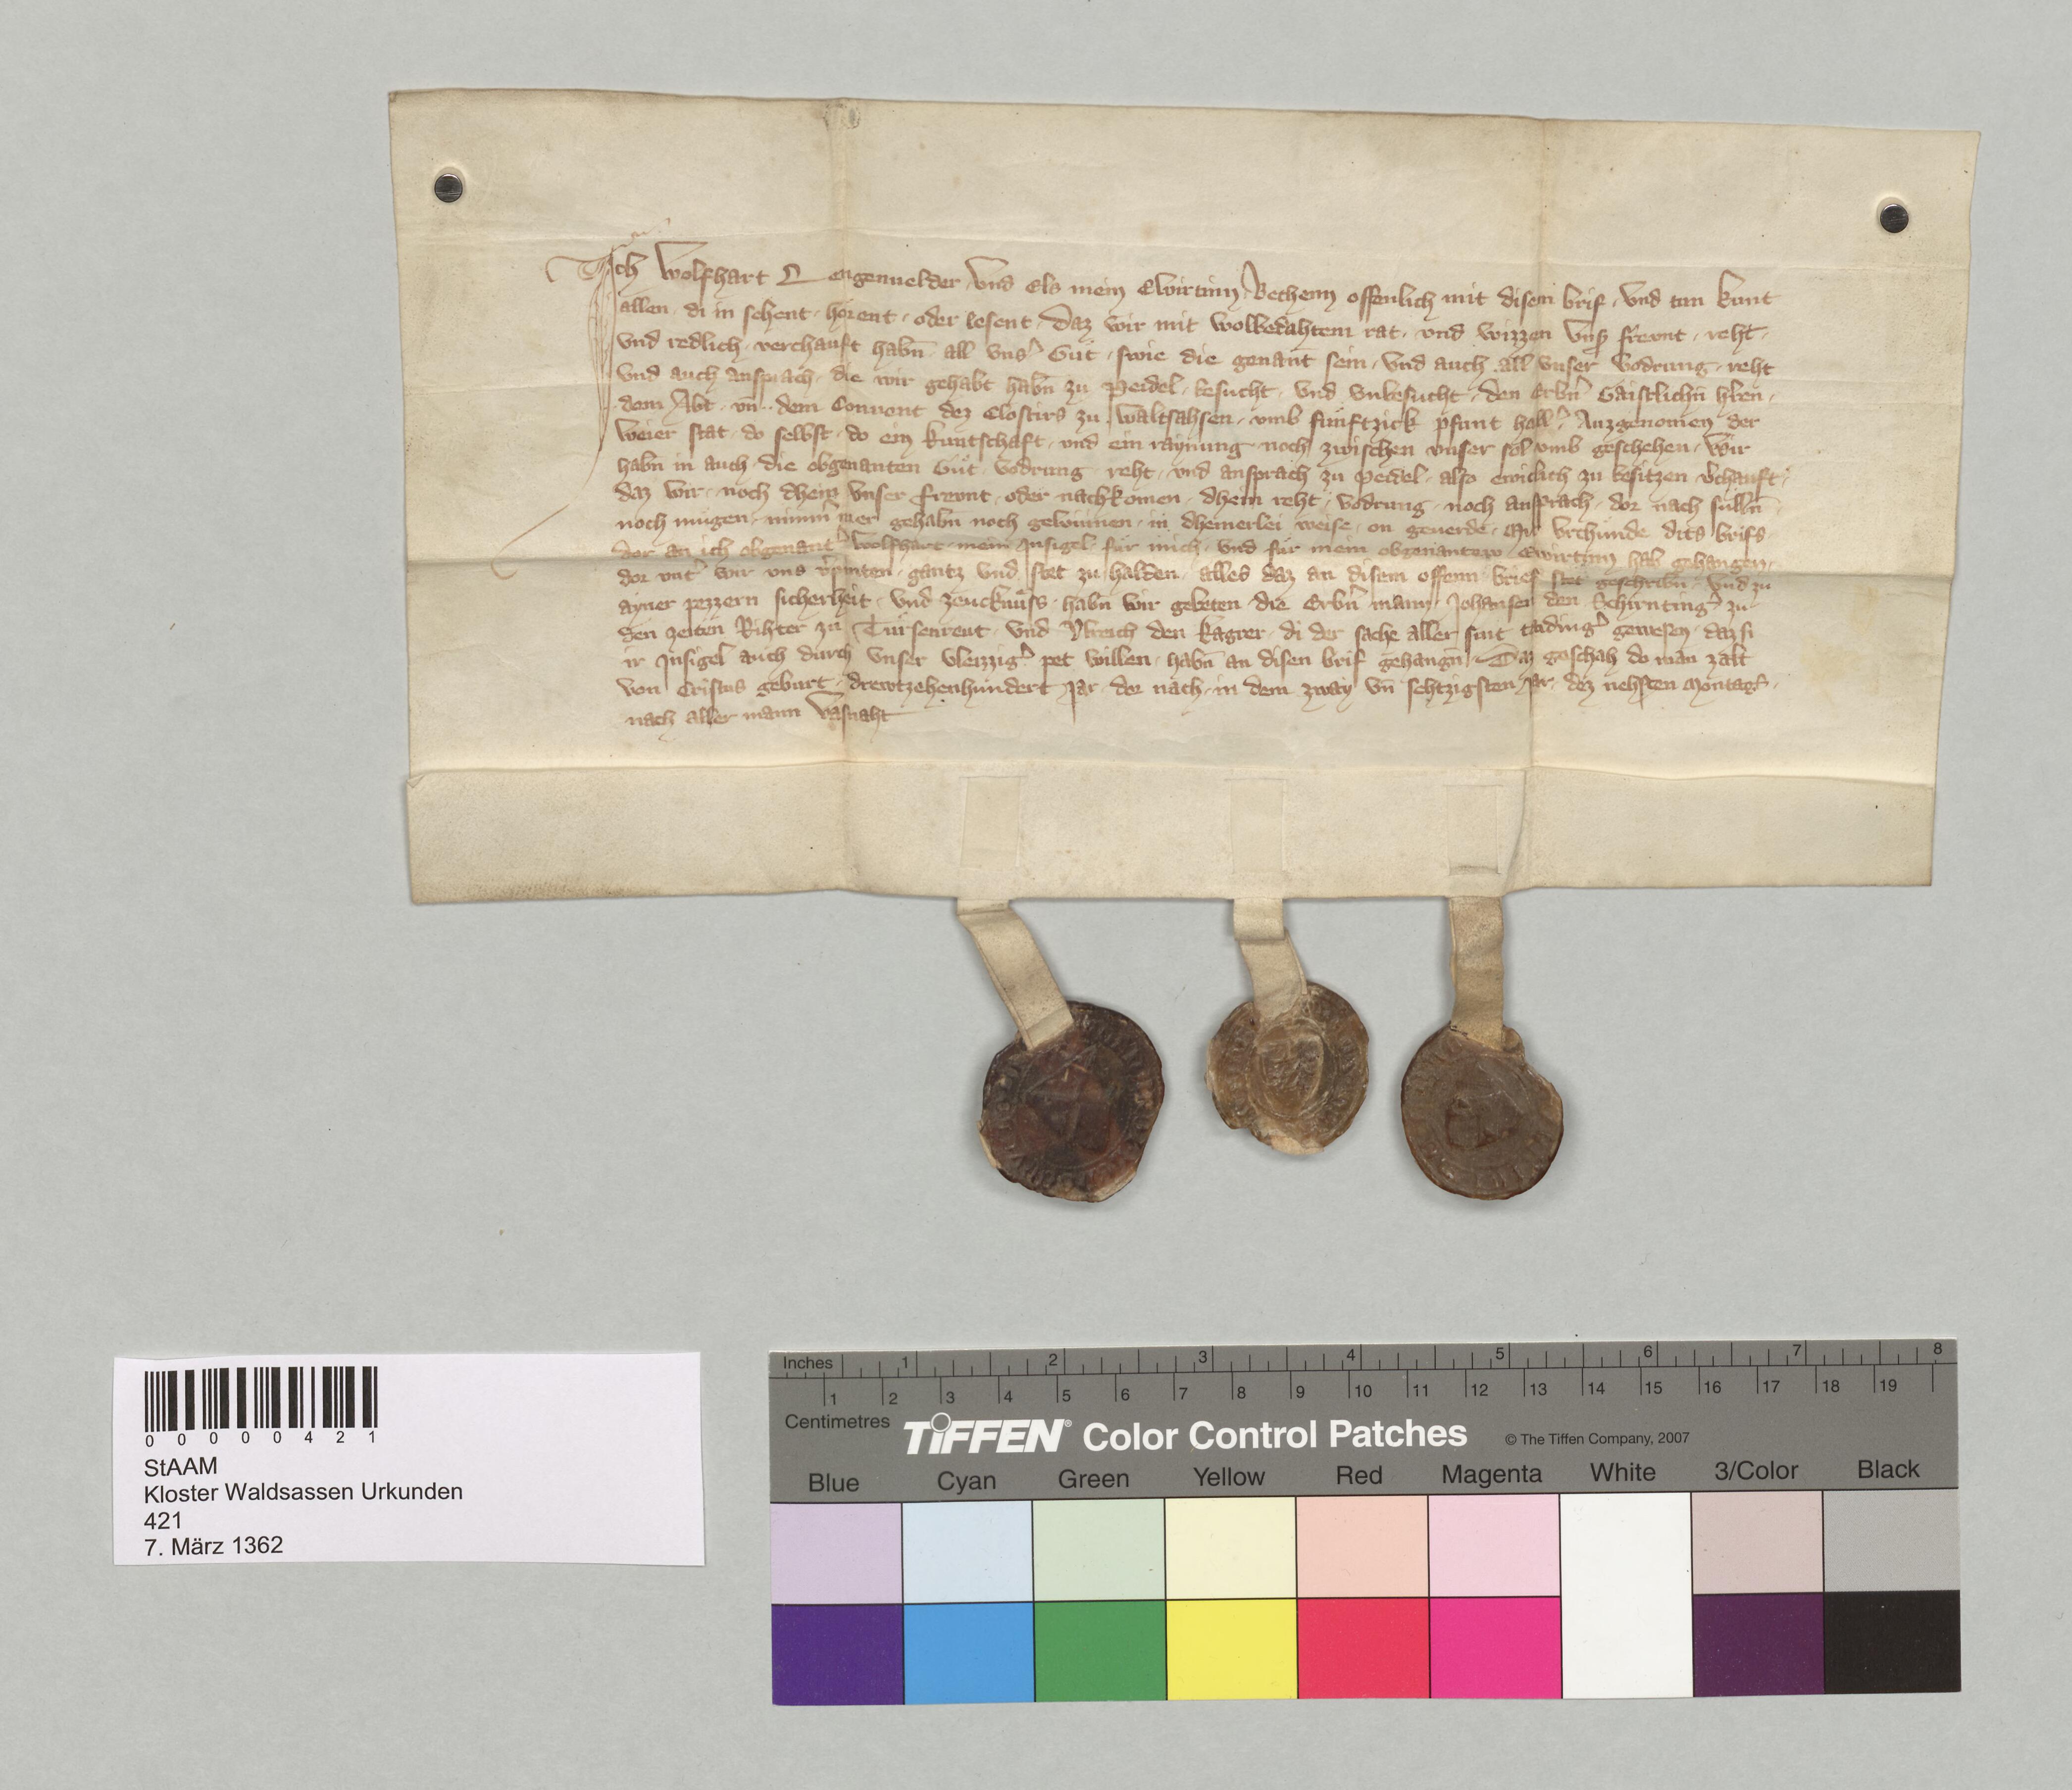 Ich Wolfhart Lengenuelder · vnd Els mein Ewirtinn · Bechenn offenlich mit disem brif · vnd tun kunt
allen · di in sehent · hörent · oder lesent · Daz wir mit wolbedahtem rat · vnd wizzen vnser frevnt · reht ·
vnd redlich · verchauft habn̄ all vnsʼ Gůt · swie die genant sein · vnd auch all vnser vodrung · reht
vnd auch ansprach · die wir gehabt habn̄ zu Peidel · besucht · vnd vnbesucht · den Erbn̄ Gaistlichn̄ hͤren ·
dem Abt · vn̄ · dem Conuent dez Closters zu Waltsahsen · vmb fünftzick pfunt hallʼ · Auzgenomen der
weier stat · do selbst · do ein kuntschaft · vnd ein raynung noch zwischen vnser sol vmb geschehen · Wir
habn̄ in auch · die obgenanten Gůt · vodrung · reht · vnd ansprach zu Peidel · also ewiclich zu besitzen vʼchauft ·
daz wir · noch dhein vnser frevnt · oder nachkomen · dhein reht · vodrung · noch ansprach · dor nach sulln̄
noch mugen · nimmʼ mer gehabn̄ noch gewinnen · in dheinerlei weise · on geuerde · Mit vrchünde dits brifs
dor an ich obgenantʼ Wolfhart mein Insigel · für mich · vnd für mein obgenantew Ewirtinn hab gehangen ·
dor vntʼ wir vns vʼpinten · gantz vnd stet zu halden · alles daz an disem offenn brief stet geschribn̄ · Vnd zu
ayner pezzern sicherheit · vnd zeucknüss · habn̄ wir gebeten die Erbn̄ mann · Johansen den Schirntingʼ zu
den zeiten Rihter zu Tursenreut · vnd Vlreich den kagrer · di der sache aller sint tadingʼ gewesen · daz si
ir Insigel auch durch vnser vleizzigʼ pet willen · habn̄ an disen brif gehangn̄ · Daz geschah do man zalt
von Cristus geburt · drewtzehenhundert Jar · dor nach · in dem zway vn̄ sehtzigsten Jar · dez nehsten Montags ·
nach aller mann vasnaht
0 0 0 0 0 4 2 1
StAAM
Kloster Waldsassen Urkunden
421
7. März 1362
Inches 1 2 3 4 5 6 7 8
1 2 3 4 5 6 7 8 9 10 11 12 13 14 15 16 17 18 19
Centimetres
TIFFEN® Color Control Patches © The Tiffen Company, 2007
Blue Cyan Green Yellow Red Magenta White 3/Color Black